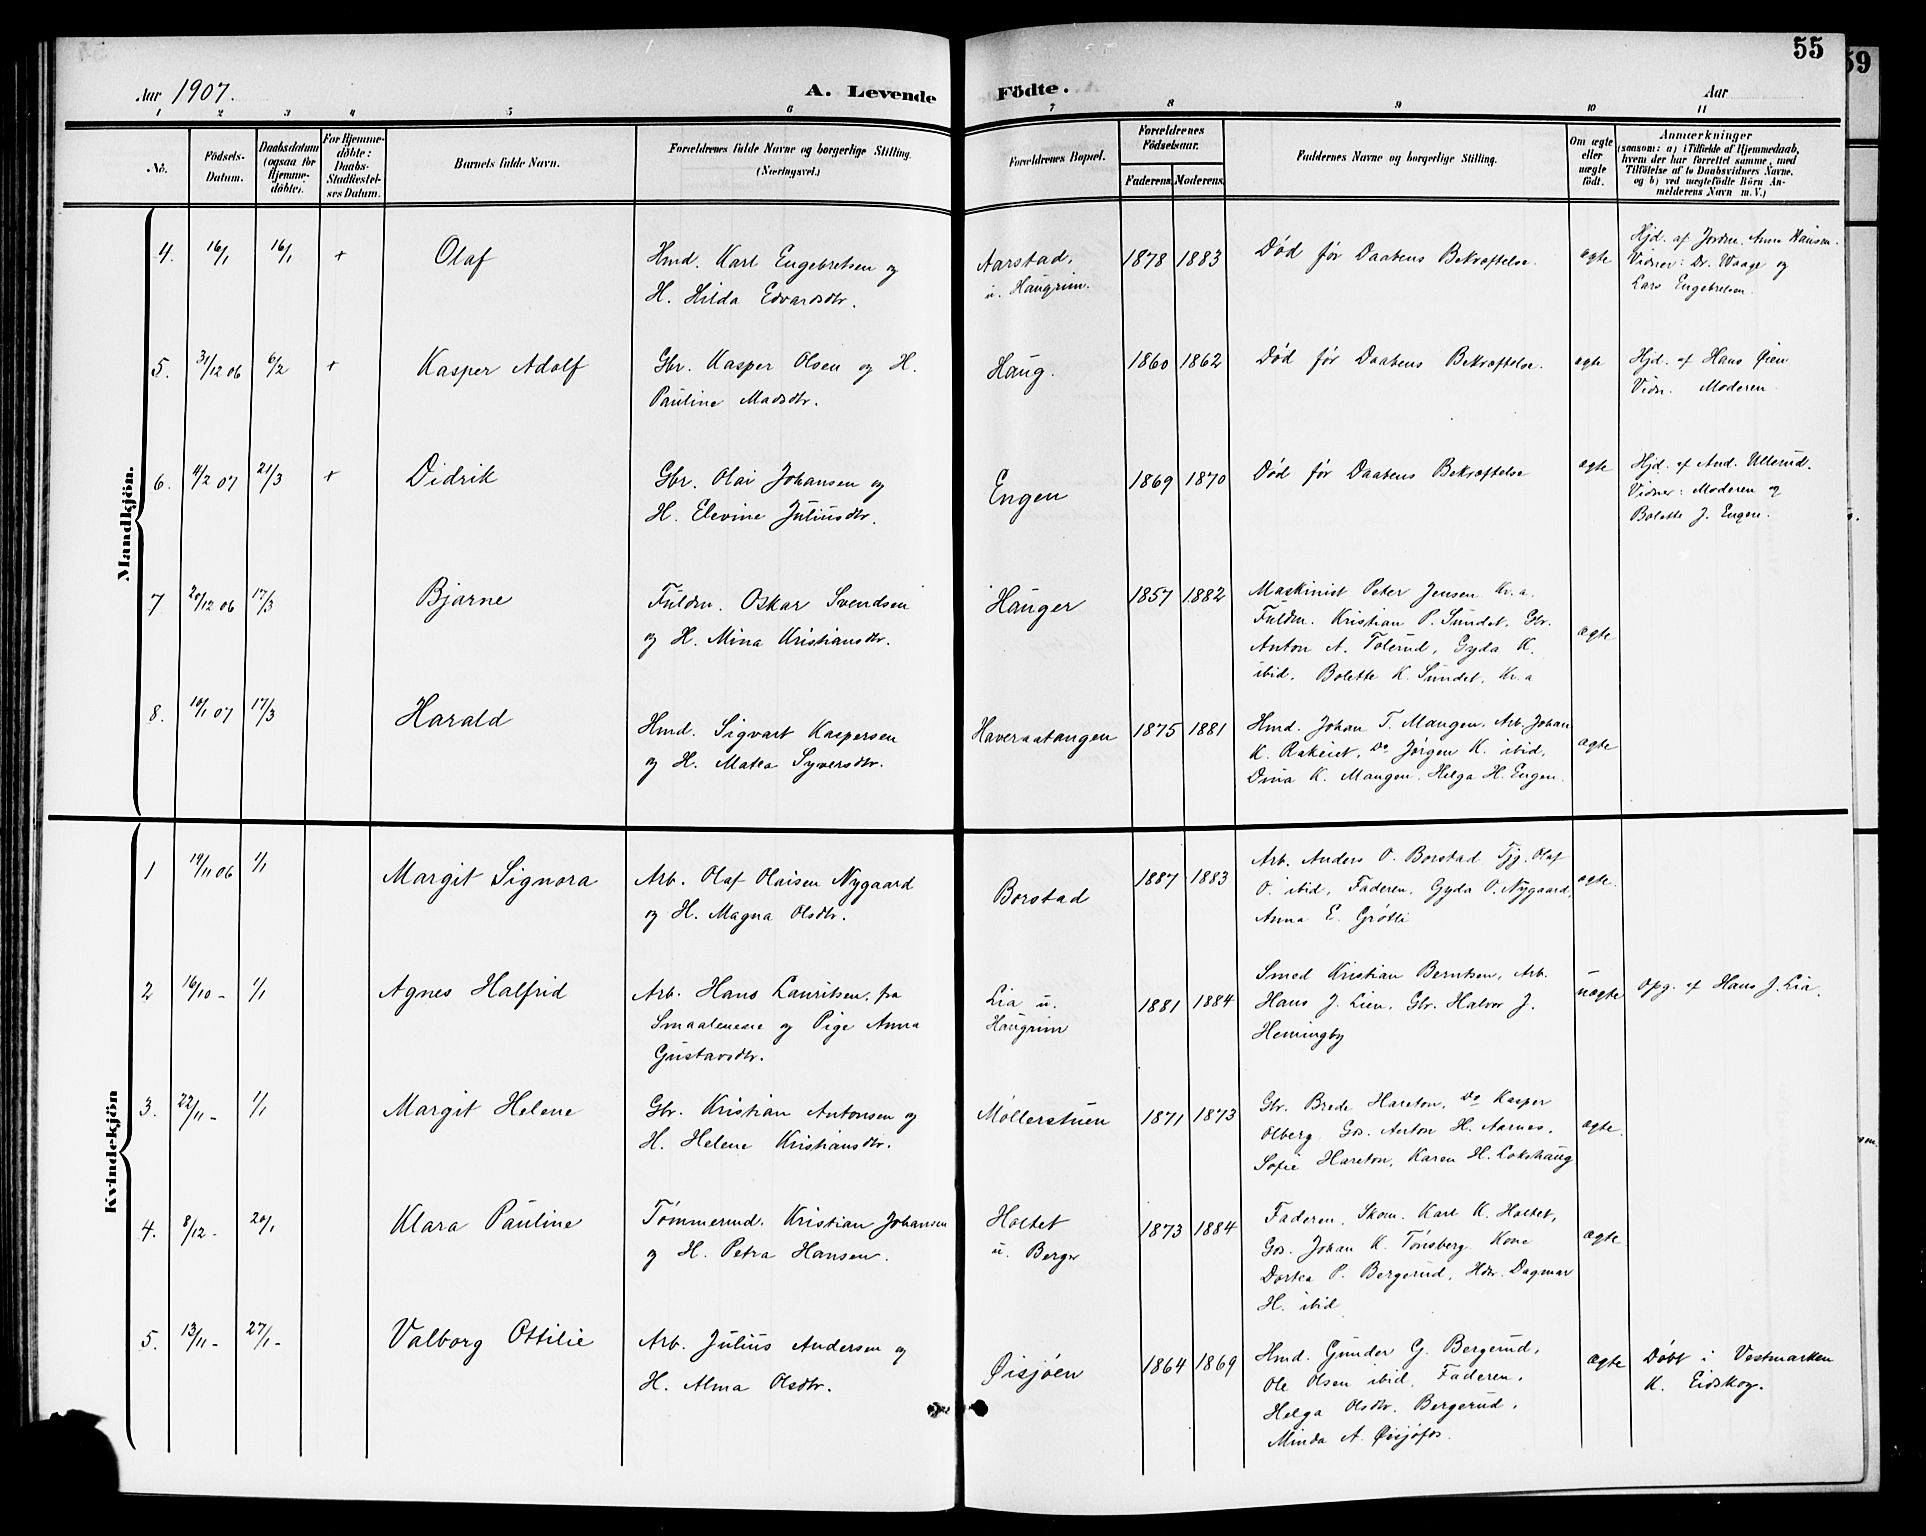 55
59
Aar 1907.
A. Levende Födte.
Aar
1 2 3 4 5 6 7 8 9 10 11
No.
Födsels-
Datum.
Daabsdatum
(ogsaa for
Hjemme-
döbte).
For Hjemme-
döbte:
Daabs-
Stadfæstel-
ses Datum.
Barnets fulde Navn.
Forældrenes fulde Navne og borgerlige Stilling.
(Næringsvei.)
Forældrenes Bopæl.
Forældrenes
Födselsaar.
Faderens. Moderens.
Faddernes Navne og borgerlige Stilling.
Om ægte
eller
uægte
födt.
Anmærkninger
(saasom: a) i Tilfælde af Hjemmedaab,
hvem der har forrettet samme, med
Tilföielse af to Daabsvidners Navne,
og b) ved uægtefödte Börn An-
melderens Navn m. V.)
Mandkjön.
4. 16/1 16/1 + Olaf
Hmd. Karl Engebretsen og
H. Hilda Edvardsdtr.
Aarstad,
u. Haugrim.
1878 1883
Død før Daabens Bekræftelse.
ægte
Hjd. af Jordm. Anna Hansen.
Vidner: Dr. Waage og
Lars Engebretsen.
5. 31/12 06 6/2 + Kasper Adolf
Gbr. Kasper Olsen og H.
Pauline Madsdtr.
Haug.
1860 1862
Død før Daabens Bekræftelse.
ægte
Hjd. af Hans Øien
Vidn. Moderen
6. 4/2 07 21/3 + Didrik
Gbr. Olai Johansen og
H. Elevine Juliusdtr.
Engen
1869 1870
Død før Daabens Bekræftelse
ægte
Hjd. af And. Ullerud.
Vidner: Moderen og
Bolette J. Engen.
7 20/12 06 17/3 Bjarne
Fuldm. Oskar Svendsen
og H. Mina Kristiansdtr.
Hauger
1857 1882
Maskinist Peter Jensen Kr.a.
Fuldm. Kristian P. Sundet, Gbr.
Anton A. Tolerud, Gyda K.
ibid, Bolette K. Sundet, Kr.a
ægte
8. 10/1 07 17/3 Harald
Hmd. Sigvart Kaspersen
og H. Matea Syversdtr.
Haveraatangen
1875 1881
Hmd. Johan T. Mangen, Arb. Johan
K. Rakeiet, Do Jørgen K. ibid,
Dina K. Mangen, Helga H. Engen.
ægte
Kvindekjön
1 19/11 06 1/1 Margit Signora
Arb. Olaf Olaisen Nygaard
og H. Magna Olsdtr.
Borstad
1887 1883
Arb. Anders O. Borstad Tjg. Olaf
O. ibid, Faderen, Gyda O. Nygaard,
Anna E. Grøtli
ægte.
2 16/10 - 1/1 Agnes Halfrid
Arb. Hans Lauritsen, fra
Smaalenene og Pige Anna
Gustavsdtr.
Lia u.
Haugrim
1881 1884
Smed Kristian Berntsen, Arb.
Hans J. Lien, Gbr. Halvor J.
Hemingby
uægte
opg. af Hans J. Lia.
3. 22/11 - 1/1 Margit Helene
Gbr. Kristian Antonsen og
H. Helene Kristiansdtr.
Møllerstuen
1871 1873
Gbr. Brede Hareton, Do Kasper
Olberg, Gds. Anton H. Aarnes,
Sofie Hareton, Karen H. Lokshaug
ægte.
4. 8/12 - 20/1 Klara Pauline
Tømmermd. Kristian Johansen
og H. Petra Hansen.
Holtet
u. Berger
1873 1884
Faderen, Skom. Karl K. Holtet,
Gds. Johan K. Tønsberg, Kone
Dortea P. Bergerud, Hdtr. Dagmar
H. ibid
ægte
5. 13/11 - 27/1 - Valborg Ottilie
Arb. Julius Andersen og
H. Alma Olsdtr.
Øisjøen
1864 1869
Hmd. Gunder G. Bergerud,
Ole Olsen ibid, Faderen,
Helga Olsdtr. Bergerud,
Minda A. Øisjøfos.
ægte
Døbt i Vestmarken
K. Eidskog.